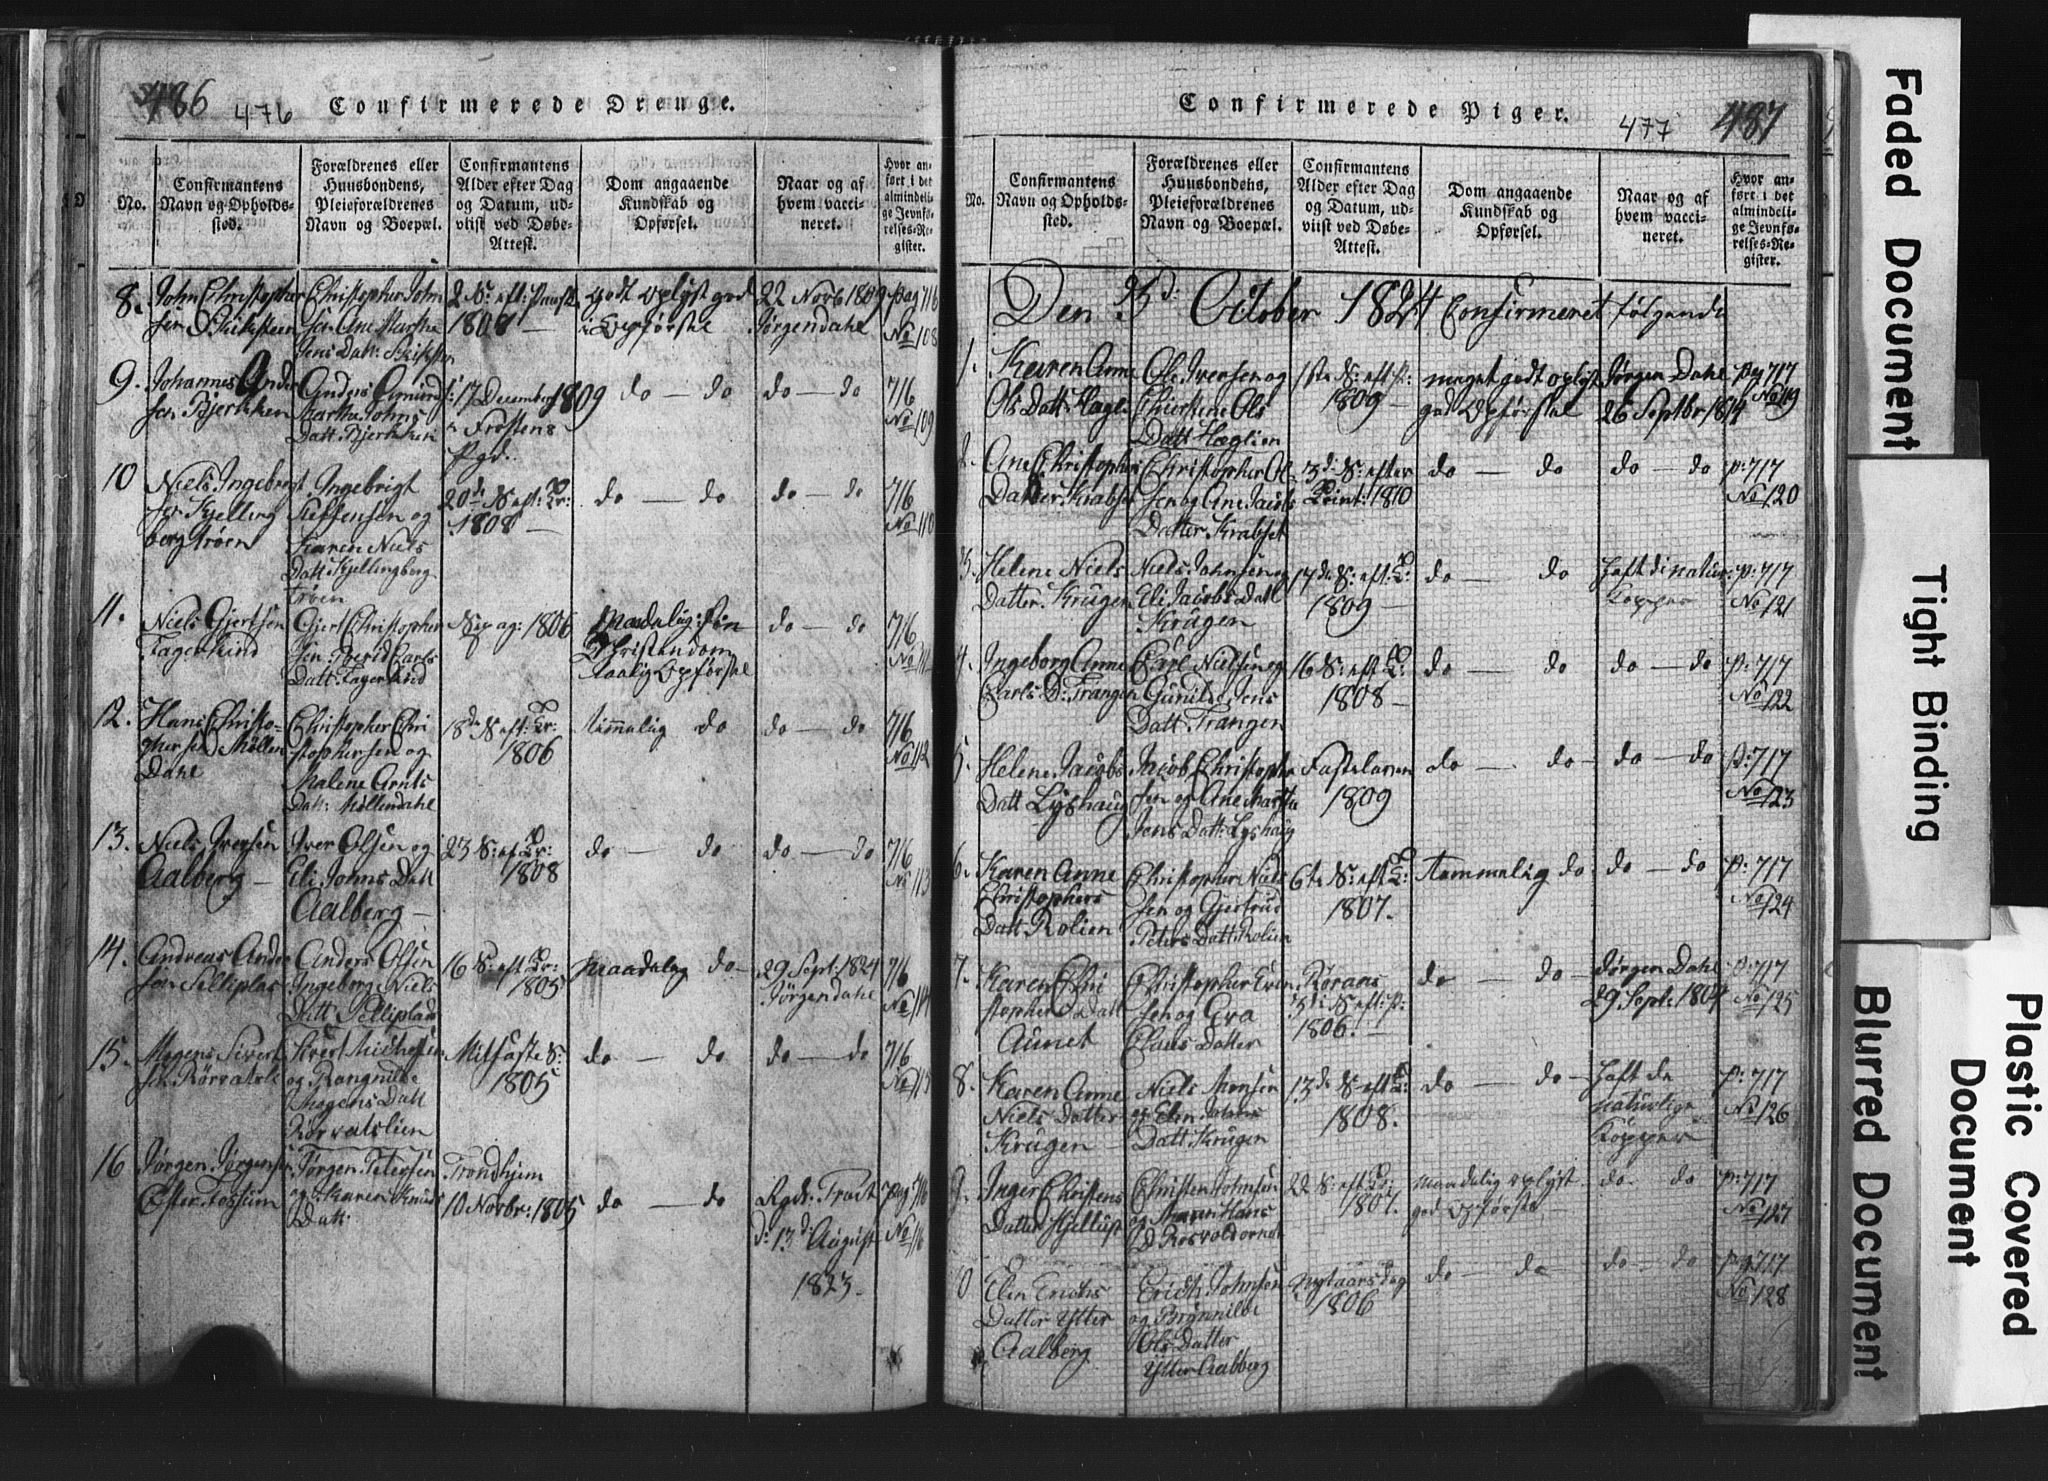 486
476
Confirmerede Drenge.
No.
Confirmantens
Navn og Opholds-
sted.
Forældrenes eller
Huusbondens,
Pleieforældrenes
Navn og Boepæl.
Confirmantens
Alder efter Dag
og Datum, ud-
viist ved Døbe-
Attest.
Dom angaaende
Kundskab og
Opførsel.
Naar og af
hvem vacci-
neret.
Hvor an-
ført i det
almindeli-
ge Jevnfø-
relses-Re-
gister.
8.
John Christopher
sen
Christopher John
sen Ane Martha
Jens Datt:
1808
godt oplyst god
Opførsel
22 Novb 1809
Jørgen Dahl
pag 716
No 108
9.
Johannes Ander
sen Bjerkken
Anders Amund
Martha Johns
Datt Bjerkken
17 December 1809
Frostens
Pgd.
do — do
do — do
716
No 109
10
Niels Ingebrigt
sen Kjelling
bergtrøen
Ingebrigt
Steffensen og
Karen Niels
Datt Kjellingberg
Trøen
20de S: eft: Tr:
1808 —
do — do
do — do
716
No 110
11.
Niels Gjertsen
Fagerlund
Gjert Christopher
sen Berid Carls
Datt: Fagerlund
1806
Maadelig: sin
Christendom
Opførsel
do — do
716
No 111
12.
Hans Christo-
phersen Møllen
Dahl
Christopher Chri
stophersen og
Malene Arnts
Datt: Møllendahl
18de S: eft: Tr:
1806
temmelig do
do — do
716
No 112
13.
Niels Iversen
Aalberg —
Iver Olsen og
Eli Johns Datt
Aalberg —
23 S: eft Tr:
1808
do — do
do — do
716
No 113
14.
Andreas Ander
sen Selliplas
Anders Olsen
Ingeborg Niels
Datt Selliplads
16 S: eft Tr:
1805
maadelig do
29 Sept: 1824
Jørgen Dahl
716
No 114
15.
Mogens Sivert
sen
Sivert Michelsen
og Rangnilde
Mogens Datt
Rørvatslien
Mitfaste S:
1805
do — do
do — do
716
No 115
16
Jørgen Jørgensen
Øster Fossum
Jørgen Petersen
og Karen Knuds
Datt:
Trondhjem
10 Novbr: 1805
do — do
d: 13d August
1823.
pag 716
No 116
Confirmerede Piger.
477
487
No.
Confirmantens
Navn og Opholds-
sted.
Forældrenes eller
Huusbondens,
Pleieforældrenes
Navn og Boepæl.
Confirmantens
Alder efter Dag
og Datum, ud-
viist ved Døbe-
Attest.
Dom angaaende
Kundskab og
Opførsel.
Naar og af
hvem vacci-
neret.
Hvor an-
ført i det
almindeli-
ge Jevnfø-
relses-Re-
gister.
Den October 1824 Confirmeret følgende
1.
Karen Anne
Ols Datt
Ole Iversen og
Ols
Datt Høglien
1ste S: eft
1809 —
meget godt oplyst
god Opførsel
Jørgen Dahl
26 Septbr 1814
pag 717
No 119
2.
Ane Christophers
Datter Krabset
Christopher Ol
sen og Ane Jacobs
Datter Krabset
3de S: efter
Trinit: 1810
do — do
do — do
p: 717
No 120
3.
Helene Niels
Datter Krugen
Niels Johnsen og
Eli Jacobs Datt
Krugen
17de S: eft: T:
1809 —
do — do
haft de naturl:
Kopper
p: 717
No 121
4.
Ingeborg Anne
Carls D: Trangen
Carl Nielsen og
Gunild Jens
Datt Trangen
16 S: eft T:
1808 —
do — do
do — do
p: 717
No 122
5.
Helene Jacobs
Datt Lyshaug
Jacob Christopher
sen og Ane Martha
Jens Datt: Lyshaug
Fastelaven
1809
do — do
do — do
p: 717
No 123
6.
Karen Anne
Christophers
Datt Rolien
Christopher Niels
sen og Gjertrud
Peters Datt Rolien
6te S: eft T:
1807.
temmelig do
do — do
p: 717
No 124
7.
Karen Chri
stopher Datt
Aunet
Christopher Even
sen og Eva
Claus Datter
Røraas
1806.
do — do
Jørgen Dahl
29 Sept: 1804
p: 717
No 125
8.
Karen Anne
Niels Datter
Krugen
Niels Monsen
og Elen Johns
Datt Krugen
13de S: eft T:
1808.
do — do
haft de
naturlige
Kopper
p: 717
No 126
9.
Inger Christens
Datter
Christen Johnsen
og Maren Hans
D
22 S: eft Tr:
1807.
maadelig oplyst
god Opførsel —
do. do
p: 717
No 127
10
Elen Erichs
Datter Ytter
Aalberg
Erich Johnsen
og Brønnilde
Ols Datter
Ytter Aalberg
Nytaarsdag
1806
do — do
do — do
pag 717
No 128
Faded Document
Tight Binding
Blurred Document
Plastic Covered
Document